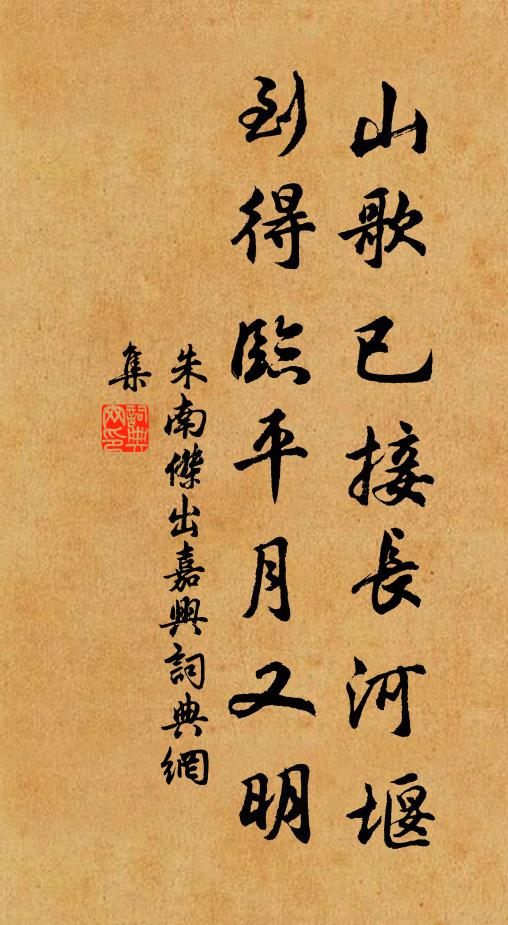 山歌已接長河堰
到得臨平月又明
朱南傑出嘉興詞典網
集
詞典網印